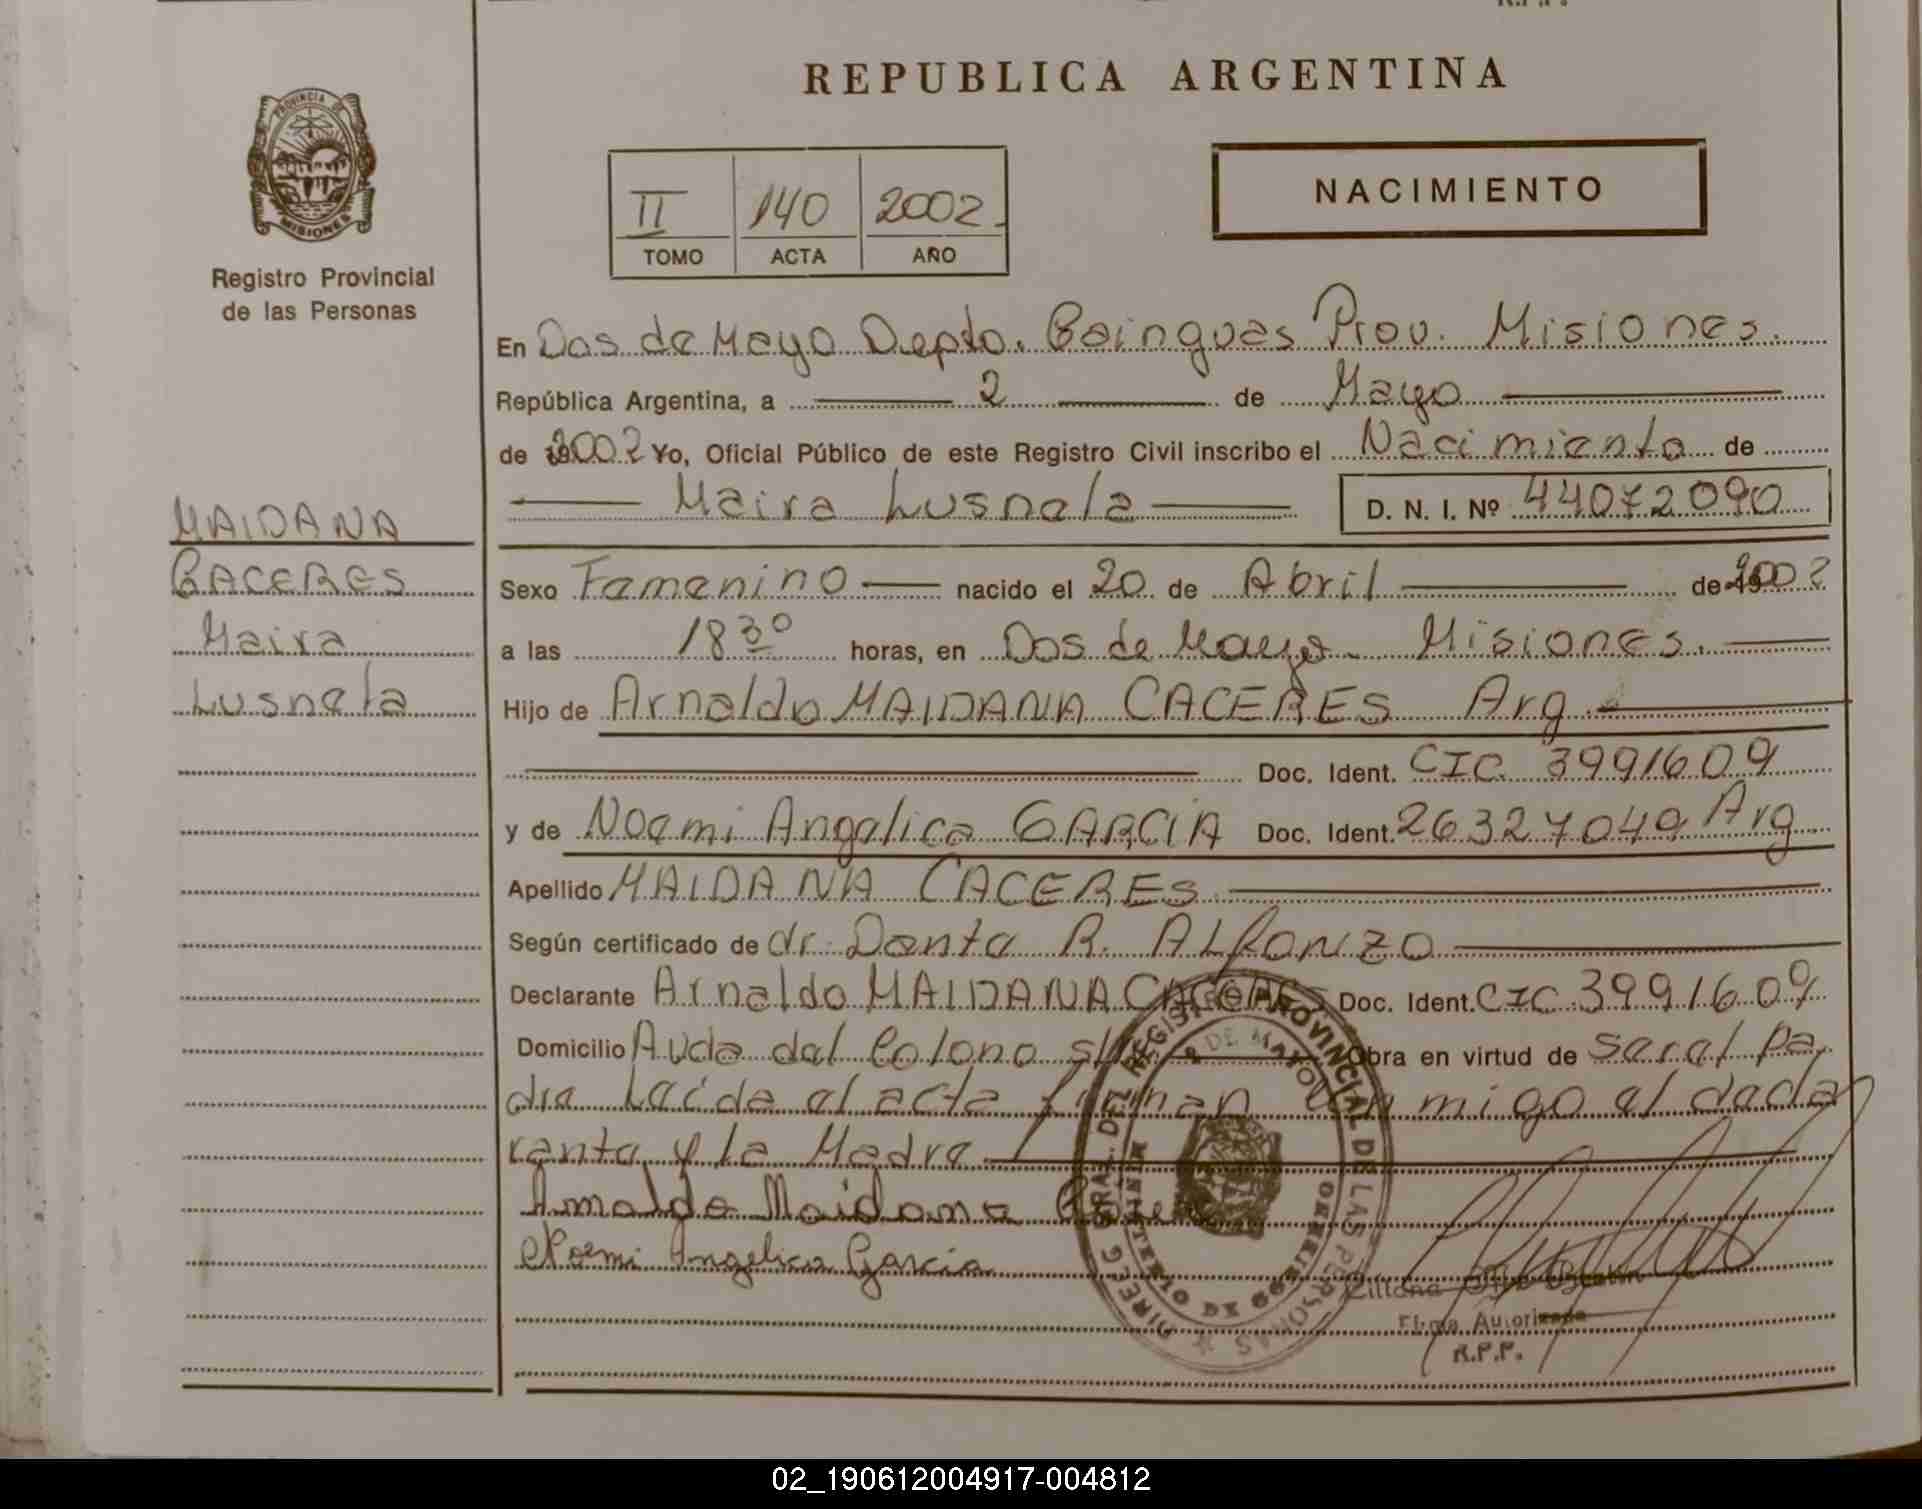 REPUBLICA ARGENTINA
PROVINCIA DE
MISIONES
Registro Provincial
de las Personas
II 140 2002
TOMO ACTA AÑO
NACIMIENTO
En Dos de Mayo Depto. Cainguas Prov. Misiones.
República Argentina, a 2 de Mayo
de 2002 Yo, Oficial Público de este Registro Civil inscribo el Nacimiento de
Maira Lusnela D. N. I. Nº 44072090
MAIDANA
CACERES
Maira
Lusnela
Sexo Femenino nacido el 20 de Abril de 2002
a las 18 30 horas, en Dos de Mayo. Misiones.
Hijo de Arnaldo MAIDANA CACERES Arg.
Doc. Ident. CIC. 3991609
y de Noemi Angelica GARCIA Doc. Ident. 26327049 Arg
Apellido MAIDANA CACERES.
Según certificado de dr. Dante R. ALFONZO
Declarante Arnaldo MAIDANA CACERES Doc. Ident. CIC 3991609
Domicilio Avda del Colono s/n Obra en virtud de ser el Pa
dre Leída el acta firman conmigo el decla
rante y la Madre
Arnaldo Maidana
Noemi Angelica Garcia
DIREC. GRAL. DEL REGISTRO PROVINCIAL DE LAS PERSONAS
2 DE MAYO
MINISTERIO DE GOBIERNO
Firma Autorizada
R.P.P.
02_190612004917-004812